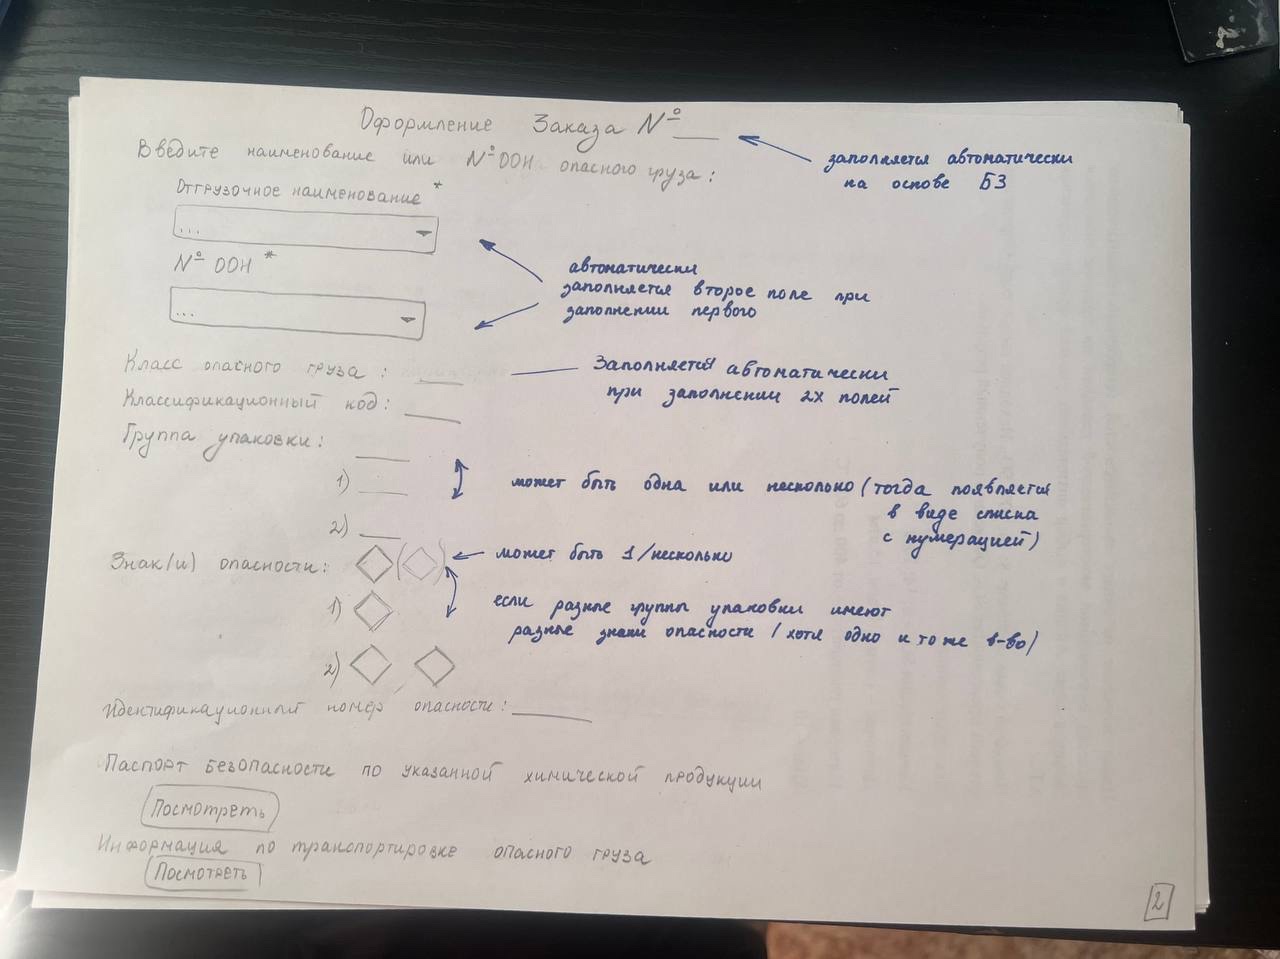 Оформление Заказа №___
заполняется автоматически
на основе БЗ
Введите наименование или №ООН опасного груза:
Отгрузочное наименование *
...
№ ООН *
...
автоматически
заполняется второе поле при
заполнении первого
Класс опасного груза : ___
Заполняется автоматически
при заполнении 2х полей
Классификационный код: ___
Группа упаковки: ___
1) ___
2) ___
может быть одна или несколько (тогда появляется
в виде списка
с нумерацией)
Знак(и) опасности: ( )
может быть 1/несколько
1)
2)
если разные группы упаковки имеют
разные знаки опасности (хотя одно и то же в-во)
Идентификационный номер опасности: ___
Паспорт безопасности по указанной химической продукции
Посмотреть
Информация по транспортировке опасного груза
Посмотреть
2